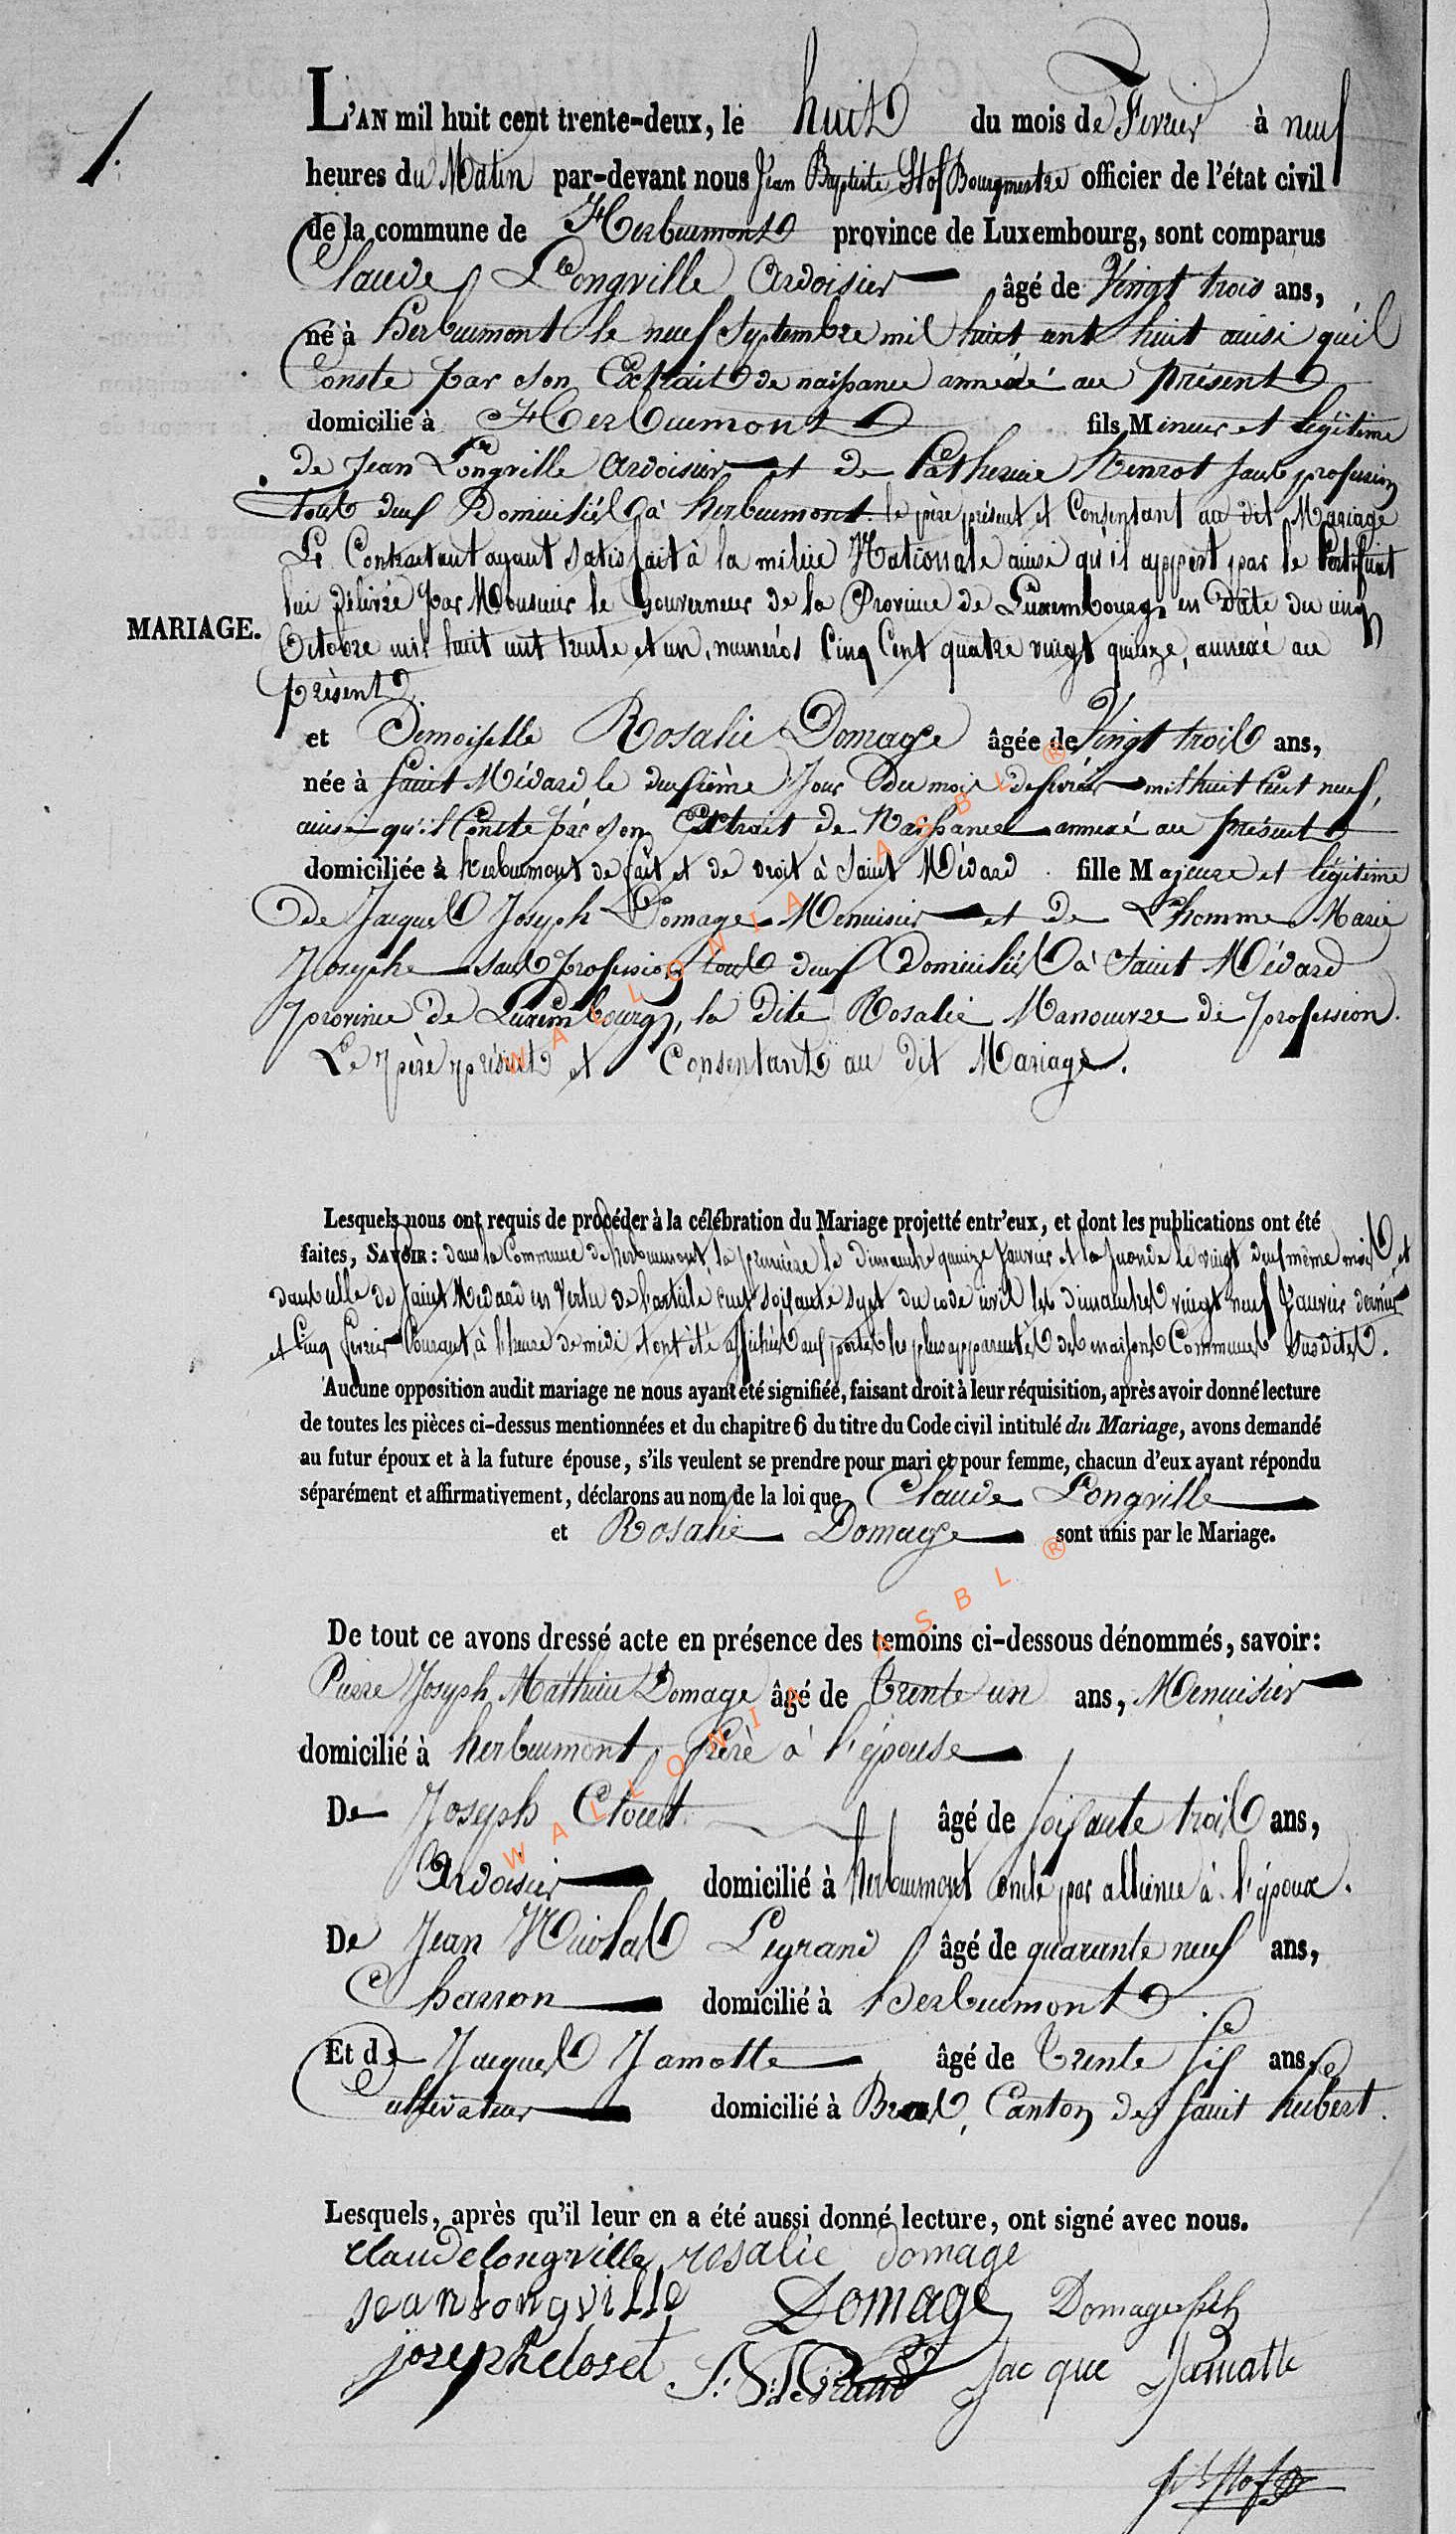 1.
L'AN mil huit cent trente-deux, le huit du mois de Fevrier à neuf
heures du Matin par-devant nous Jean Baptiste Stof Bourgmestre officier de l'état civil
de la commune de Herbeumont province de Luxembourg, sont comparus
Claude Longville Ardoisier âgé de Vingt trois ans,
né à herbeumont le neuf Septembre mil huit cent huit ainsi qu'il
Conste par son Extrait de naissance annexé au présent
domicilié à Herbeumont fils Mineur et légitime
de Jean Longville Ardoisier et de Catherine henrot sans profession
tous deux Domiciliés à herbeumont. le père présent et Consentant au dit Mariage
Le Contractant ayant satisfait à la milice Nationale ainsi qu'il appert par le Certificat
lui délivré par Monsieur le Gouverneur de la Province de Luxembourg, en Date du cinq
MARIAGE.
Octobre mil huit cent trente et un, numéros Cinq Cent quatre vingt quinze, annexé au
présent.
et Demoiselle Rosalie Domage âgée de Vingt trois ans,
née à Saint Médard le deuxième Jour du mois de fevrier mil huit Cent neuf,
ainsi qu'il Conste par son Extrait de Naissance annexé au présent
domiciliée à herbeumont de fait et de droit à Saint Médard fille Majeure et légitime
de Jacques Joseph Domage Menuisier et de Lhomme Marie
Josephe sans profession tous deux Domiciliés à Saint Médard
province de Luxembourg, la dite Rosalie Manouvre de profession.
Le père présent et Consentant au dit Mariage.
Lesquels nous ont requis de procéder à la célébration du Mariage projetté entr'eux, et dont les publications ont été
faites, SAVOIR: dans la Commune de herbeumont, la première le dimanche quinze Janvier et la seconde le vingt deux même mois et
dans celle de Saint Médard en Vertu de l'article cent soixante sept du code civil les dimanches vingt neuf Janvier dernier
et Cinq fevrier Courant, à l'heure de midi et ont été affichés aux portes les plus apparentes des maisons Communes Susdites.
Aucune opposition audit mariage ne nous ayant été signifiée, faisant droit à leur réquisition, après avoir donné lecture
de toutes les pièces ci-dessus mentionnées et du chapitre 6 du titre du Code civil intitulé du Mariage, avons demandé
au futur époux et à la future épouse, s'ils veulent se prendre pour mari et pour femme, chacun d'eux ayant répondu
séparément et affirmativement, déclarons au nom de la loi que Claude Longville
et Rosalie Domage sont unis par le Mariage.
De tout ce avons dressé acte en présence des temoins ci-dessous dénommés, savoir:
Pierre Joseph Mathieu Domage âgé de Trente un ans, Menuisier
domicilié à herbeumont, frère à l'épouse
De Joseph Closet âgé de soixante trois ans,
Ardoisier domicilié à herbeumont oncle par alliance à l'époux.
De Jean Nicolas Legrand âgé de quarante neuf ans,
Charron domicilié à herbeumont
Et de Jacques Jamotte âgé de Trente six ans,
Cultivateur domicilié à Bras, Canton de Saint hubert.
Lesquels, après qu'il leur en a été aussi donné lecture, ont signé avec nous.
claude longville rosalie domage
jean longville Domage Domage fils
joseph closet J: N: LeGrand Jacque Jamotte
WALLONIA ASBL ®
WALLONIA ASBL ®